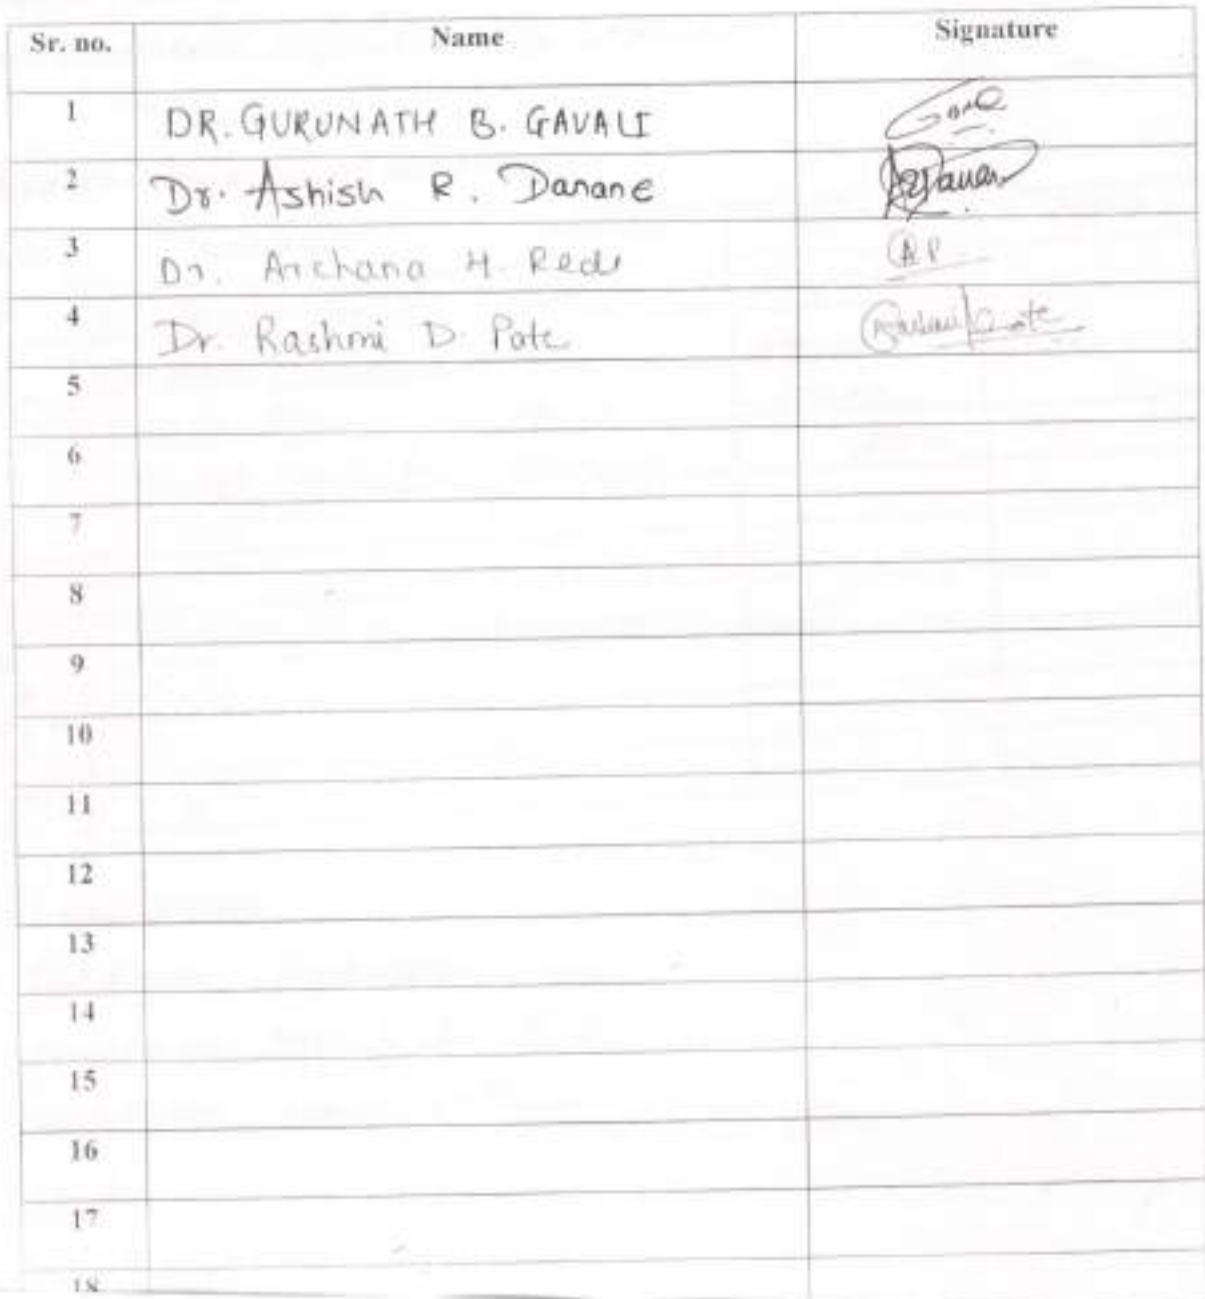 Sr. no. Name Signature
1 DR. GURUNATH B. GAVALI
2 Dr. Ashish R. Danane
3 Dr. Archana H. Redi AP
4 Dr. Rashmi D. Pate
5
6
7
8
9
10
11
12
13
14
15
16
17
18